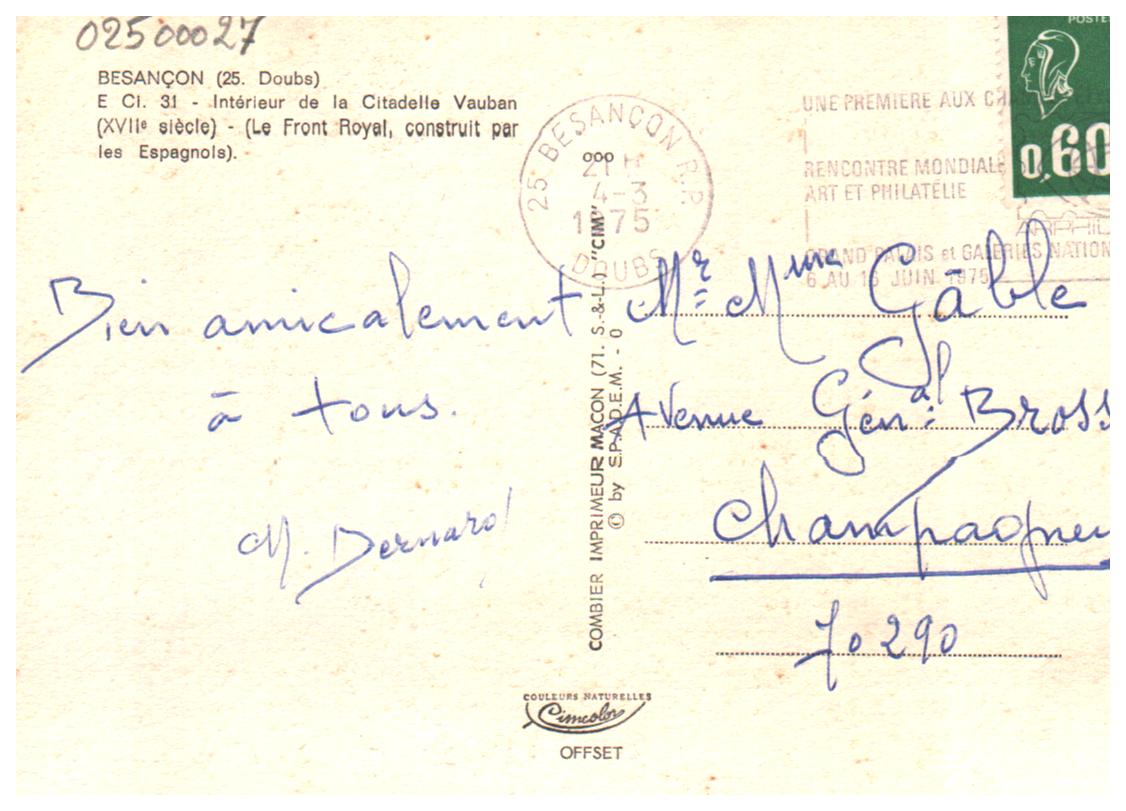 02500027
BESANÇON (25. Doubs)
E Ci. 31 - Intérieur de la Citadelle Vauban
(XVIIe siècle) - (Le Front Royal, construit par
les Espagnols).
25 BESANÇON R.P.
21 H
4-3
1975
DOUBS
UNE PREMIERE AUX
RENCONTRE MONDIALE
ART ET PHILATÉLIE
ARPHIL
GRAND PALAIS et GALERIES NATION
6 AU 16 JUIN 1975
POSTE
0,60
Bien amicalement
à tous.
M. Bernard
ooo
COMBIER IMPRIMEUR MACON (71. S.-&-L.) "CIM"
© by S.P.A.D.E.M. - 0
Mr Mme Gâble
Avenue Génal Bross
Champagne
70290
COULEURS NATURELLES
Cimcolor
OFFSET